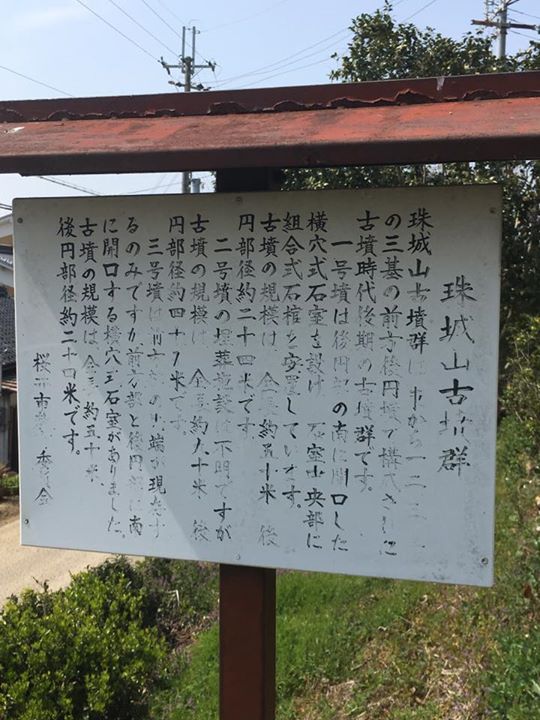 珠城山古墳群
珠城山古墳群は 東から一 二 三
の三基の前方後円墳で構成された
古墳時代後期の古墳群です。
一号墳は後円部の南に開口した
横穴式石室を設け 石室中央部に
組合式石棺を安置しています。
古墳の規模は 全長約五十米 後
円部径約二十四米です
二号墳の埋葬施設は不明ですが
古墳の規模は 全長約八十米 後
円部径約四十 米です。
三号墳は 方部の 端が現存す
るのみですが前方部と後円部に南
に開口する横穴式石室がありました。
古墳の規模は 全長約五十米
後円部径約二十四米です。
桜井市 委員会